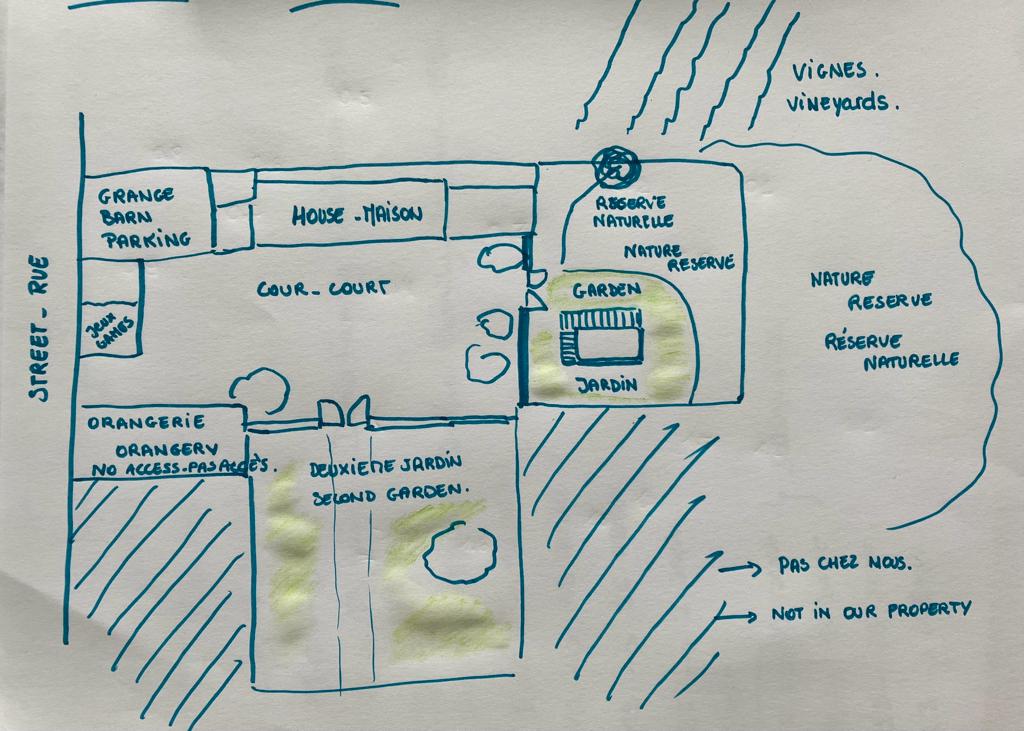 VIGNES.
VINEYARDS.
GRANGE
BARN
PARKING
HOUSE - MAISON
RESERVE
NATURELLE
NATURE
RESERVE
STREET - RUE
COUR - COURT
JEUX
GAMES
GARDEN
JARDIN
NATURE
RESERVE
RÉSERVE
NATURELLE
ORANGERIE
ORANGERY
NO ACCESS - PAS ACCÈS.
DEUXIEME JARDIN
SECOND GARDEN.
→ PAS CHEZ NOUS.
→ NOT IN OUR PROPERTY